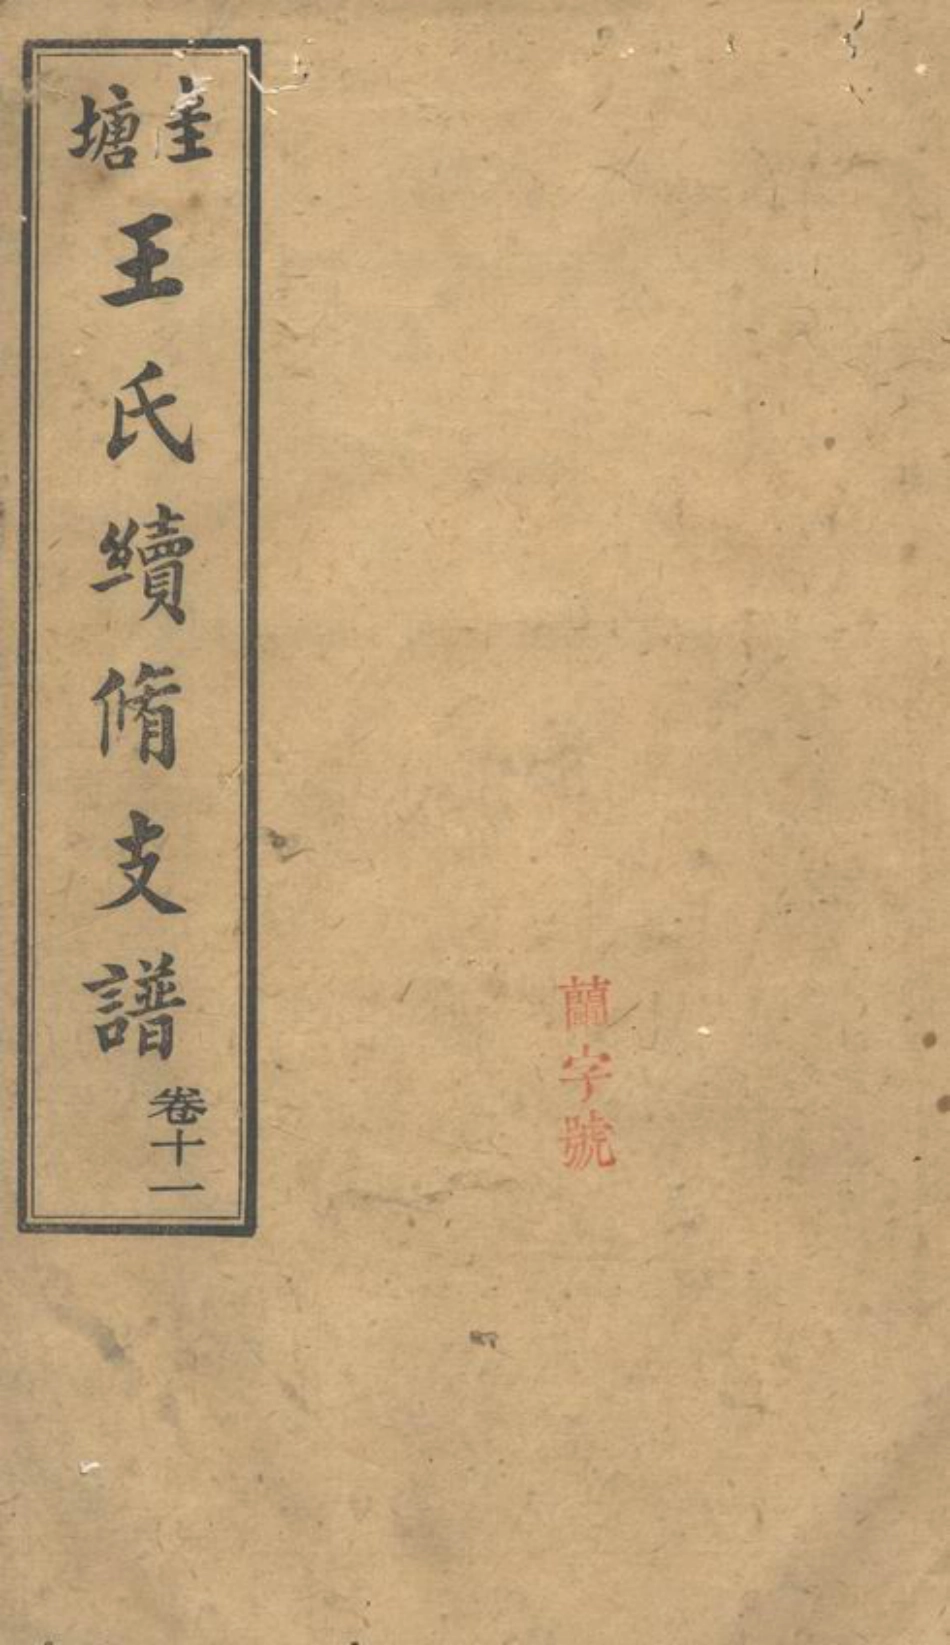 塘
王氏續脩支譜
卷十一
蘭字號